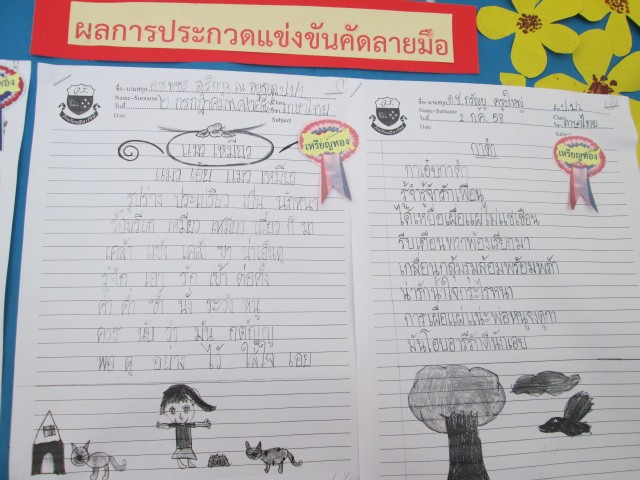 ผลการประกวดแข่งขันคัดลายมือ
ชื่อ-นามสกุล
Name-Surname
วันที่
Date
Subject
ภาษาไทย
เหรียญทอง
แมวเหมียว
แมว เอ๋ย แมว เหมียว
รูปร่าง ประเปรียว เป็น นักหนา
ร้องเรียก เหมียว เหมียว เดี๋ยว ก็ มา
เคล้า แข้ง เคล้า ขา น่าเอ็นดู
รู้จัก เอา รัก เข้า ต่อตั้ง
ค่ำ ค่ำ ซ้ำ นั่ง ระวัง หนู
ควร นับ ว่า มัน กตัญญู
พอ ดู อย่าง ไว้ ใส่ใจ เอย
ชื่อ-นามสกุล
Name-Surname
วันที่ 2 ก.ค. 58
Date
Class
ภาษาไทย
Subject
เหรียญทอง
กาดำ
กาเอ๋ยกาดำ
รู้จำรู้จักรักเพื่อน
ได้เหยื่อเผื่อแผ่ไม่แชเชือน
รีบเตือนพวกพ้องร้องเรียกมา
เกลื่อนกลุ้มรุมล้อมพร้อมพรัก
น่ารักน้ำใจกระไรหนา
การเผื่อแผ่แน่ะพ่อหนูจงดูกา
มันโอบอารีรักดีนักเอย